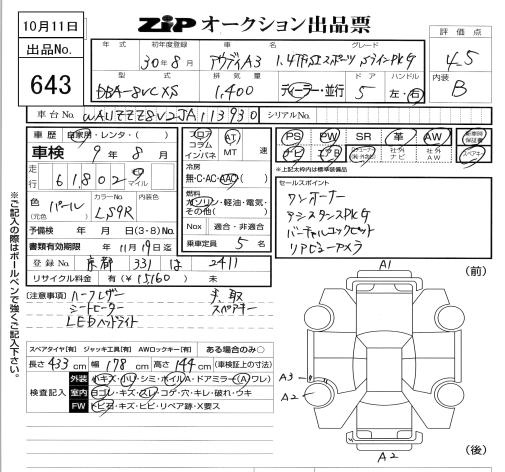 10月11日
ZIP オークション出品票
出品No.
643
年式 初年度登録 車名 グレード
30年8月 アウディA3 1.4TFSIスポーツ SラインPKG
型式 排気量 ドア ハンドル
DBA-8VCXS 1,400 ディーラー・並行 5 左・右
評価点
4.5
内装
B
車台No. WAUZZZ8V2JA113930 シリアルNo.
車歴 自家用・レンタ・( )
車検 9年8月
走行 61,802 マイル
色 (元色) パール カラーNo. LS9R 内装色
予備検 年 月 日(3・8)No.
書類有効期限 11月19日迄
登録No. 京都 331 は 2411
リサイクル料金 有(¥15160) 未
フロア コラム インパネ AT MT 速
冷房
無・C・AC・AAC
燃料
ガソリン・軽油・電気・その他( )
Nox 適合・非適合
乗車定員 5名
PS PW SR 革 AW 新車時保証書
ナビ エアB 社外ナビ 社外AW スペアキー
※上記太枠内は標準装備品
セールスポイント
ワンオーナー
アシスタンスPKG
バーチャルコックピット
リアビューカメラ
(注意事項) ハーフレザー
シートヒーター
LEDヘッドライト
手、取
スペアキー
スペアタイヤ[有] ジャッキ工具[有] AWロックキー[有] ある場合のみ○
長さ433cm 幅178cm 高さ144cm (車検証上の寸法)
検査記入
外装 小キズ・小リ・シミ・ホイルA・ドアミラー(A)ワレ)
室内 ヨゴレ・キズ・スレ・コゲ・穴・キレ・破れ・ウキ
FW トビ石・キズ・ヒビ・リペア跡・X要ス
※ご記入の際はボールペンで強くご記入下さい。
A1
(前)
A3
A2
A2
(後)